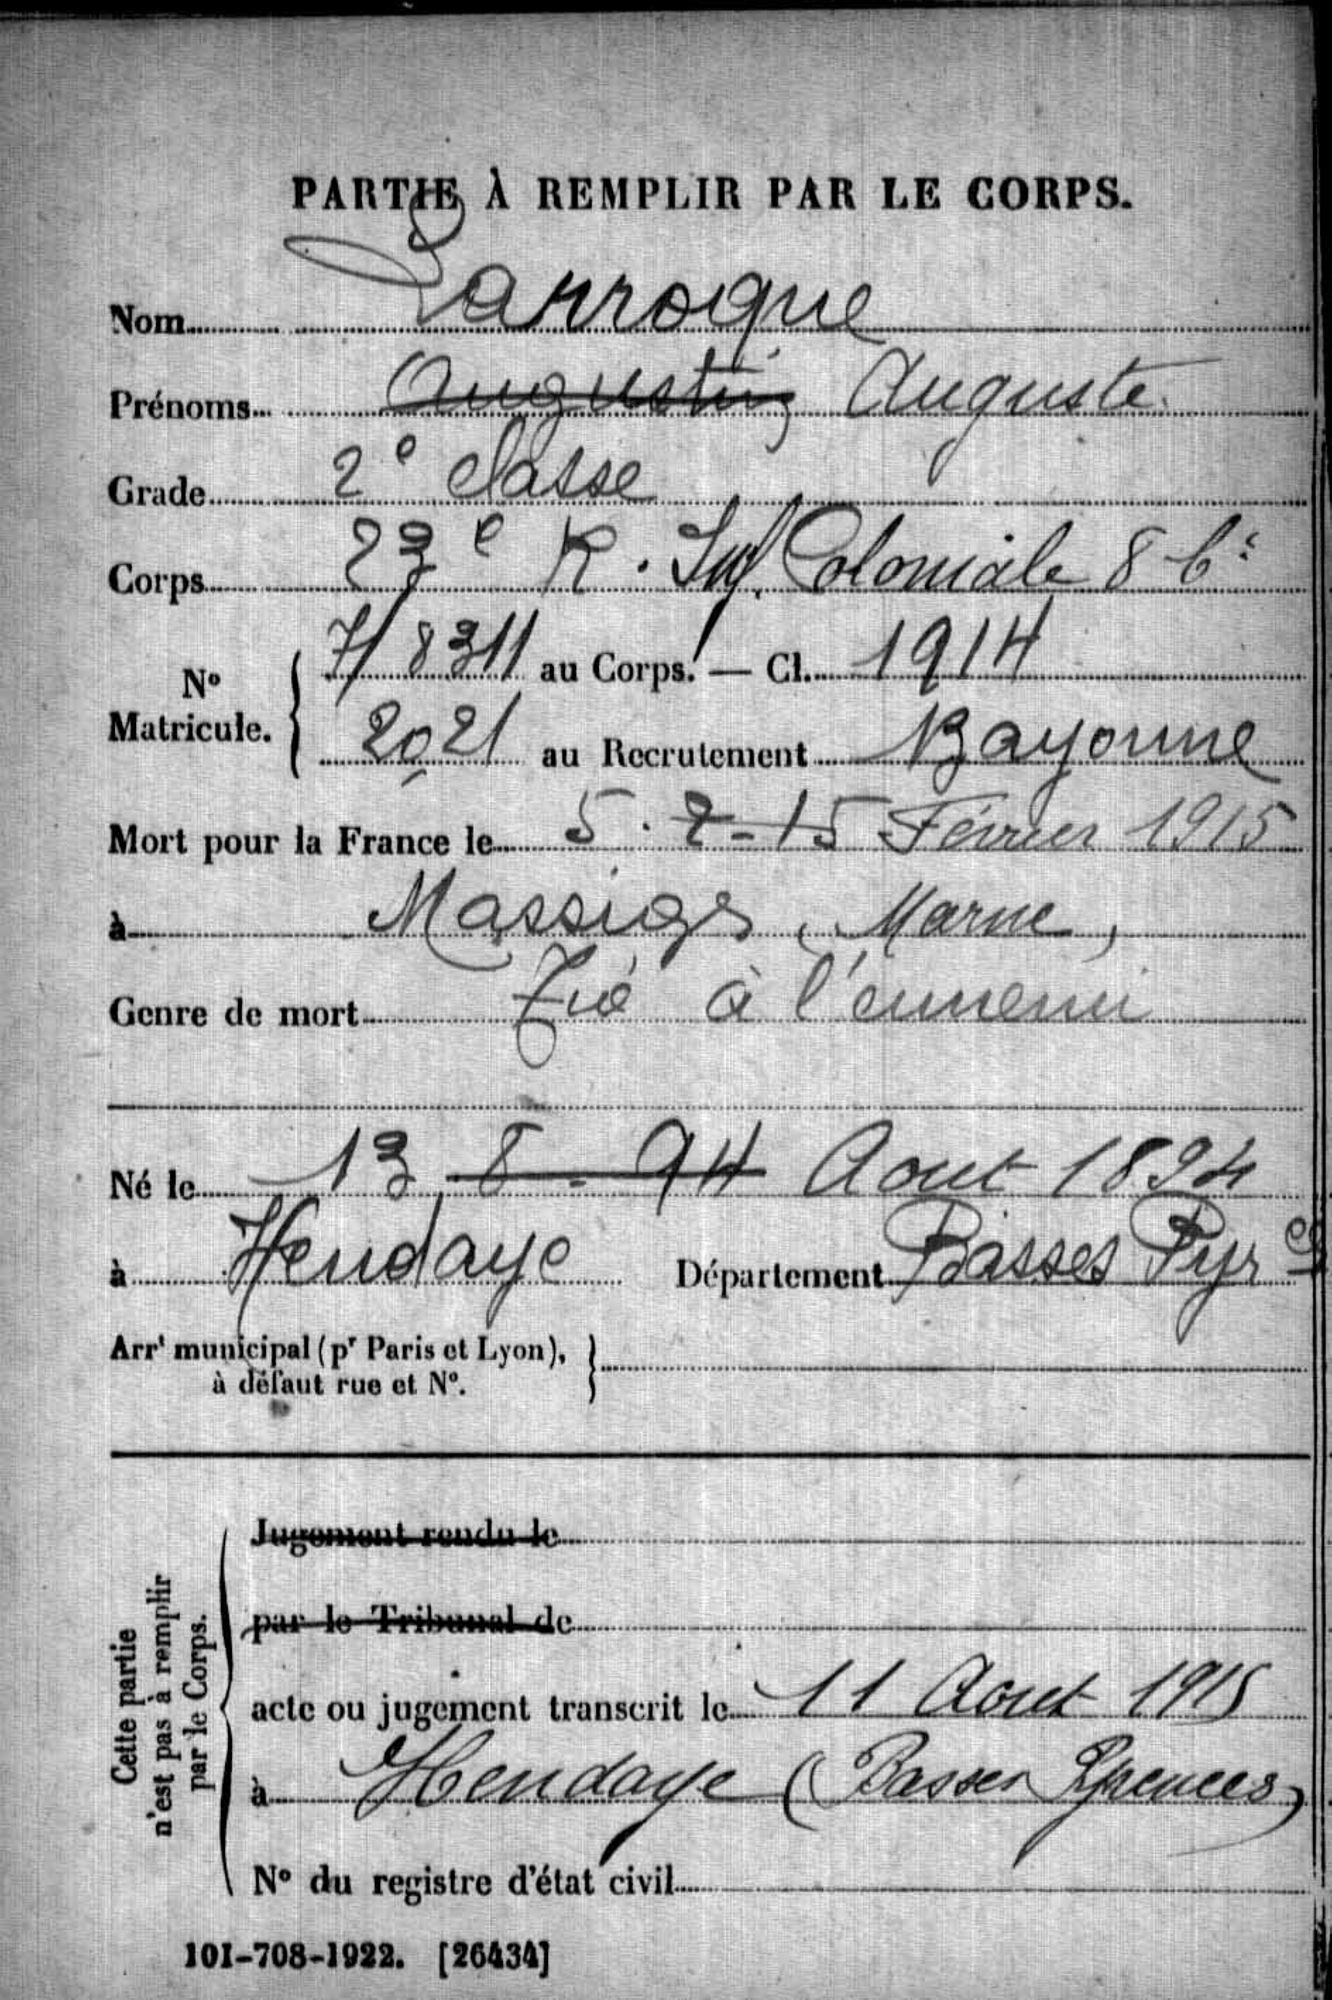 PARTIE À REMPLIR PAR LE CORPS.
Nom Larroque
Prénoms Augustin Auguste
Grade 2e Classe
Corps 23e R. Inf. Coloniale 8 Cie
No Matricule. 7/8311 au Corps. — Cl. 1914
2021 au Recrutement Bayonne
Mort pour la France le 5. 2-15 Février 1915
à Massiges, Marne,
Genre de mort Tué à l'ennemi
Né le 13 8-94 Aout 1894
à Hendaye Département Basses Pyrées
Arrt municipal (pr Paris et Lyon),
à défaut rue et N°.
Cette partie
n'est pas à remplir
par le Corps.
Jugement rendu le
par le Tribunal de
acte ou jugement transcrit le 11 Aout 1915
à Hendaye (Basses Pyrenees)
N° du registre d'état civil
101-708-1922. [26434]